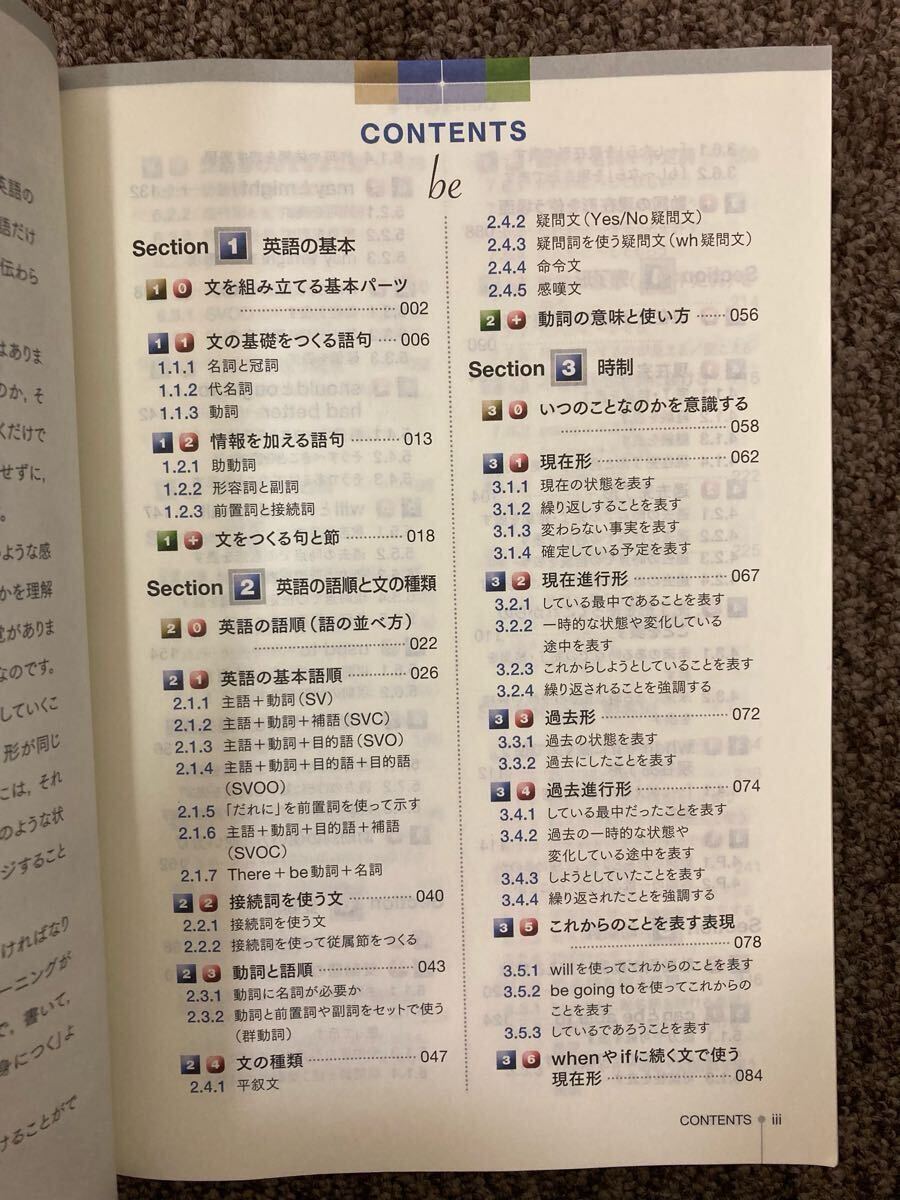 英語の
語だけ
伝わら
はありま
のか，そ
くだけで
せずに，
のような感
かを理解
覚がありま
なのです。
していくこ
形が同じ
には，それ
のような状
ジすること
ければなり
ーニングが
で，書いて，
身につく」よ
けることがで
CONTENTS
be
Section 1 英語の基本
1 0 文を組み立てる基本パーツ
002
1 1 文の基礎をつくる語句 006
1.1.1 名詞と冠詞
1.1.2 代名詞
1.1.3 動詞
1 2 情報を加える語句 013
1.2.1 助動詞
1.2.2 形容詞と副詞
1.2.3 前置詞と接続詞
1 + 文をつくる句と節 018
Section 2 英語の語順と文の種類
2 0 英語の語順（語の並べ方）
022
2 1 英語の基本語順 026
2.1.1 主語＋動詞（SV）
2.1.2 主語＋動詞＋補語（SVC）
2.1.3 主語＋動詞＋目的語（SVO）
2.1.4 主語＋動詞＋目的語＋目的語
（SVOO）
2.1.5 「だれに」を前置詞を使って示す
2.1.6 主語＋動詞＋目的語＋補語
（SVOC）
2.1.7 There＋be動詞＋名詞
2 2 接続詞を使う文 040
2.2.1 接続詞を使う文
2.2.2 接続詞を使って従属節をつくる
2 3 動詞と語順 043
2.3.1 動詞に名詞が必要か
2.3.2 動詞と前置詞や副詞をセットで使う
（群動詞）
2 4 文の種類 047
2.4.1 平叙文
2.4.2 疑問文（Yes/No疑問文）
2.4.3 疑問詞を使う疑問文（wh疑問文）
2.4.4 命令文
2.4.5 感嘆文
2 + 動詞の意味と使い方 056
Section 3 時制
3 0 いつのことなのかを意識する
058
3 1 現在形 062
3.1.1 現在の状態を表す
3.1.2 繰り返しすることを表す
3.1.3 変わらない事実を表す
3.1.4 確定している予定を表す
3 2 現在進行形 067
3.2.1 している最中であることを表す
3.2.2 一時的な状態や変化している
途中を表す
3.2.3 これからしようとしていることを表す
3.2.4 繰り返されることを強調する
3 3 過去形 072
3.3.1 過去の状態を表す
3.3.2 過去にしたことを表す
3 4 過去進行形 074
3.4.1 している最中だったことを表す
3.4.2 過去の一時的な状態や
変化している途中を表す
3.4.3 しようとしていたことを表す
3.4.4 繰り返されたことを強調する
3 5 これからのことを表す表現
078
3.5.1 willを使ってこれからのことを表す
3.5.2 be going toを使ってこれからの
ことを表す
3.5.3 しているであろうことを表す
3 6 whenやifに続く文で使う
現在形 084
CONTENTS iii